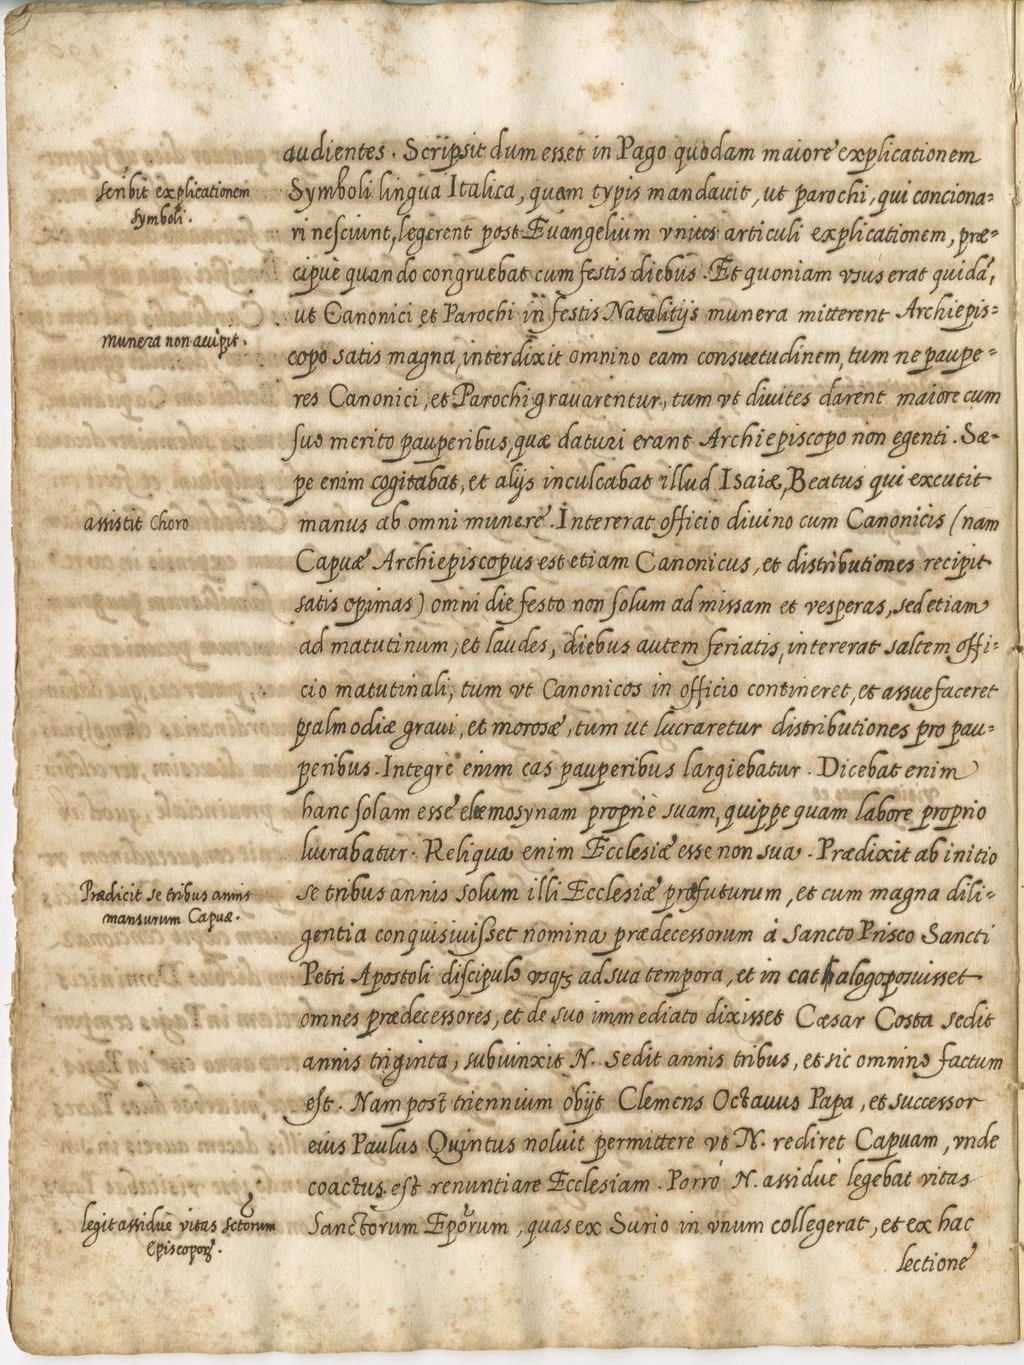 audientes. Scripsit dum esset in Pago quodam maiore explicationem
scribit explicationem
symboli.
Symboli lingua Italica, quam typis mandauit, ut parochi, qui conciona=
ri nesciunt, legerent post Euangelium vnius articuli explicationem, præ=
cipuè quando congruebat cum festis diebus. Et quoniam vsus erat quidã,
ut Canonici et Parochi in festis Natalitijs munera mitterent Archiepis=
munera non accipit.
copo satis magna, interdixit omnino eam consuetudinem, tum ne paupe=
res Canonici, et Parochi grauarentur, tum vt diuites darent maiore cum
suo merito pauperibus, quæ daturi erant Archiepiscopo non egenti. Sæ=
pe enim cogitabat, et alijs inculcabat illud Isaiæ, Beatus qui excutit
assistit Choro
manus ab omni munere. Intererat officio diuino cum Canonicis (nam
Capuæ Archiepiscopus est etiam Canonicus, et distributiones recipit
satis opimas) omni die festo non solum ad missam et vesperas, sed etiam
ad matutinum, et laudes, diebus autem feriatis, intererat saltem offi=
cio matutinali, tum vt Canonicos in officio contineret, et assuefaceret
psalmodiæ graui, et morosæ, tum ut lucraretur distributiones pro pau=
peribus. Integrè enim eas pauperibus largiebatur. Dicebat enim
hanc solam esse elemosynam propriè suam, quippe quam labore proprio
lucrabatur. Reliqua enim Ecclesiæ esse non sua. Prædixit ab initio
Prædicit se tribus annis
mansurum Capuæ.
se tribus annis solum illi Ecclesiæ præfuturum, et cum magna dili=
gentia conquisiuisset nomina prædecessorum à Sancto Prisco Sancti
Petri Apostoli discipulo vsq; ad sua tempora, et in cathalogo posuisset
omnes prædecessores, et de suo immediato dixisset Cæsar Costa sedit
annis triginta, subiunxit N. sedit annis tribus, et sic omnino factum
est. Nam post triennium obijt Clemens Octauus Papa, et successor
eius Paulus Quintus noluit permittere vt N. rediret Capuam, vnde
coactus est renuntiare Ecclesiam. Porrò N. assiduè legebat vitas
legit assiduè vitas sctorum
Episcoporꝝ.
Sanctorum Eporum, quas ex Surio in vnum collegerat, et ex hac
lectione